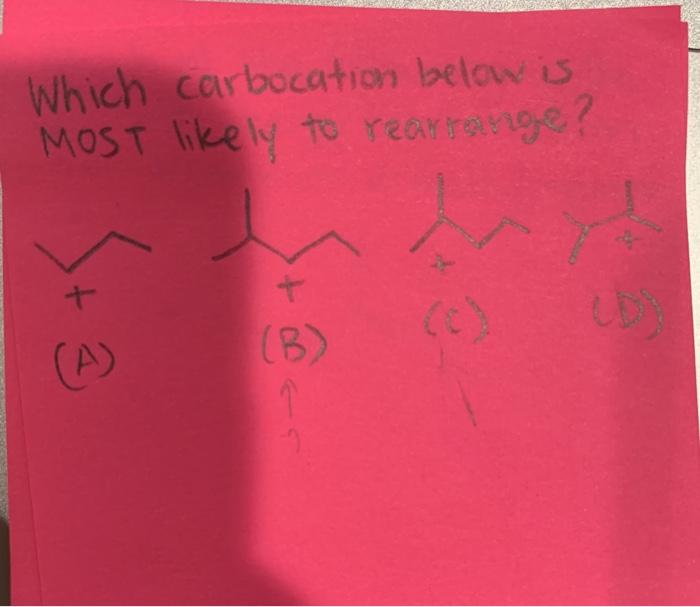 Which carbocation below is
MOST likely to rearrange?
+ + + +
(A) (B) (C) (D)
↑
?